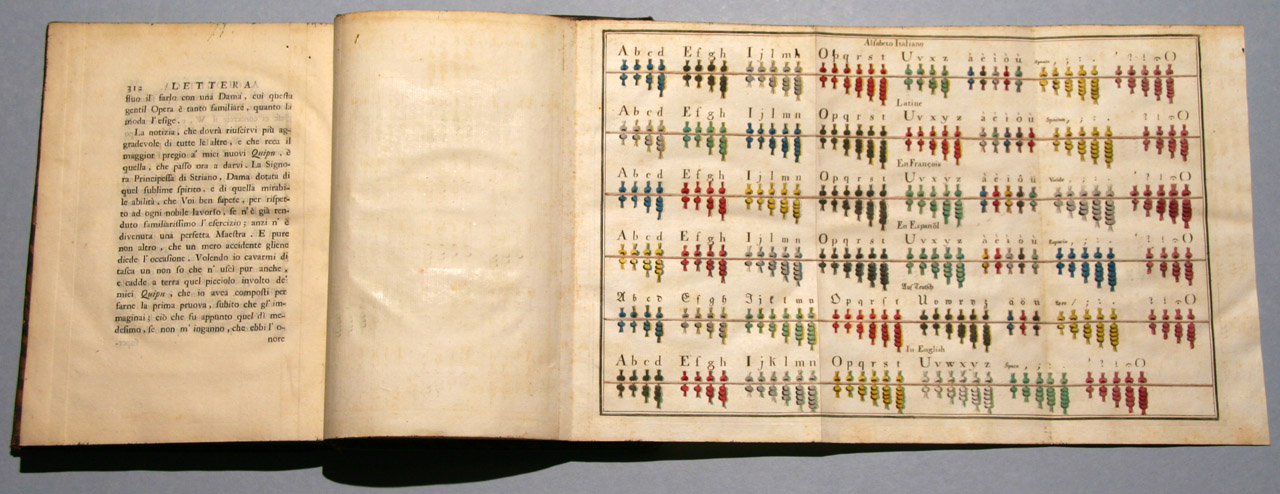 312 LETTERA
stuo il farlo con una Dama, cui questa
gentil Opera è tanto familiare, quanto la
moda l'esige.
La notizia, che dovrà riuscirvi più ag-
gradevole di tutte le altre, e che reca il
maggior pregio a' miei nuovi Quipu, è
quella, che passo ora a darvi. La Signo-
ra Principessa di Striano, Dama dotata di
quel sublime spirito, e di quella mirabi-
le abilità, che Voi ben sapete, per rispet-
to ad ogni nobile lavorso, se n'è già ren-
duto familiarissimo l'esercizio; anzi n'è
divenuta una perfetta Maestra. E pure
non altro, che un mero accidente gliene
diede l'occasione. Volendo io cavarmi di
tasca un non so che n'uscì pur anche,
e cadde a terra quel picciolo involto de'
miei Quipu, che io avea composti per
farne la prima pruova, subito che gl'im-
maginai; ciò che fu appunto quel dì me-
desimo, se non m'inganno, che ebbi l'o-
nore
Alfabeto Italiano
A b c d E f g h I j l m n O p q r s t U v x z à è ì ò ù
Latine
A b c d E f g h I j l m n O p q r s t U v x y z à è ì ò ù
En François
A b c d E f g h I j l m n O p q r s t U v x y z à è ì ô ù
En Español
A b c d E f g h I j l m n O p q r s t U v x y z à è ì ò ù
Auf Teutsch
A b c d E f g h I j k l m n O p q r s t U v w x y z ä ö ü
In English
A b c d E f g h I j k l m n O p q r s t U v w x y z Space , ; : .